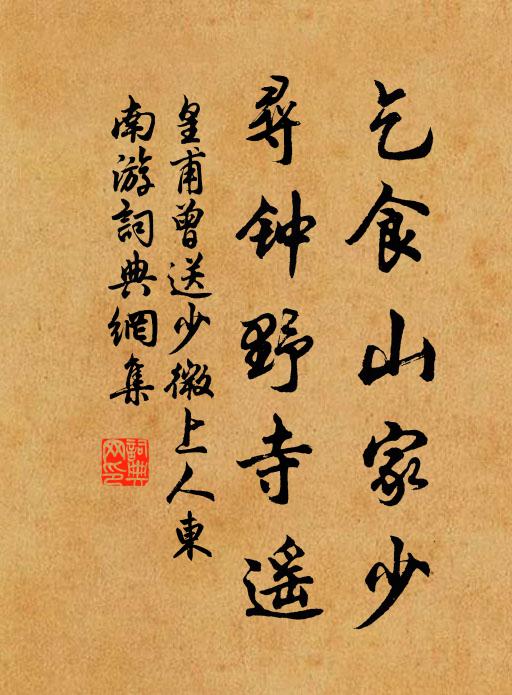 乞食山家少
尋钟野寺遥
皇甫曾送少微上人東
南游詞典網集
詞典网印